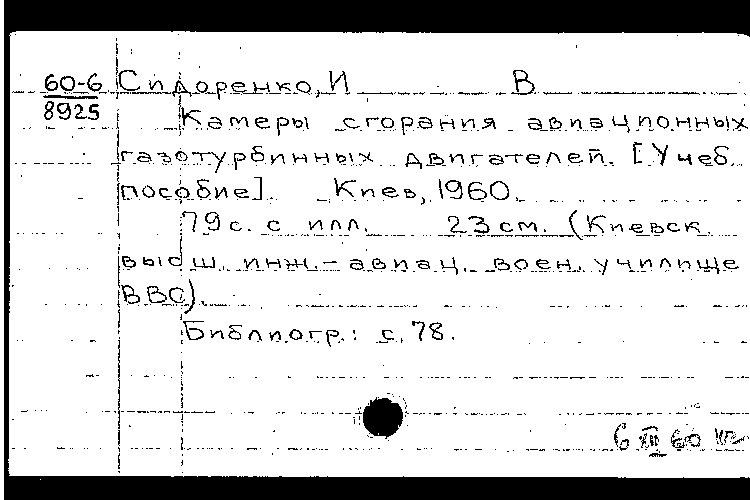 60-6 Сидоренко, И В
8925
Камеры сгорания авиационных
газотурбинных двигателей. [Учеб.
пособие]. Киев, 1960.
79 с. с илл. 23 см. (Киевск.
высш. инж.-авиац. воен. училище
ВВС).
Библиогр.: с. 78.
6 XII 60